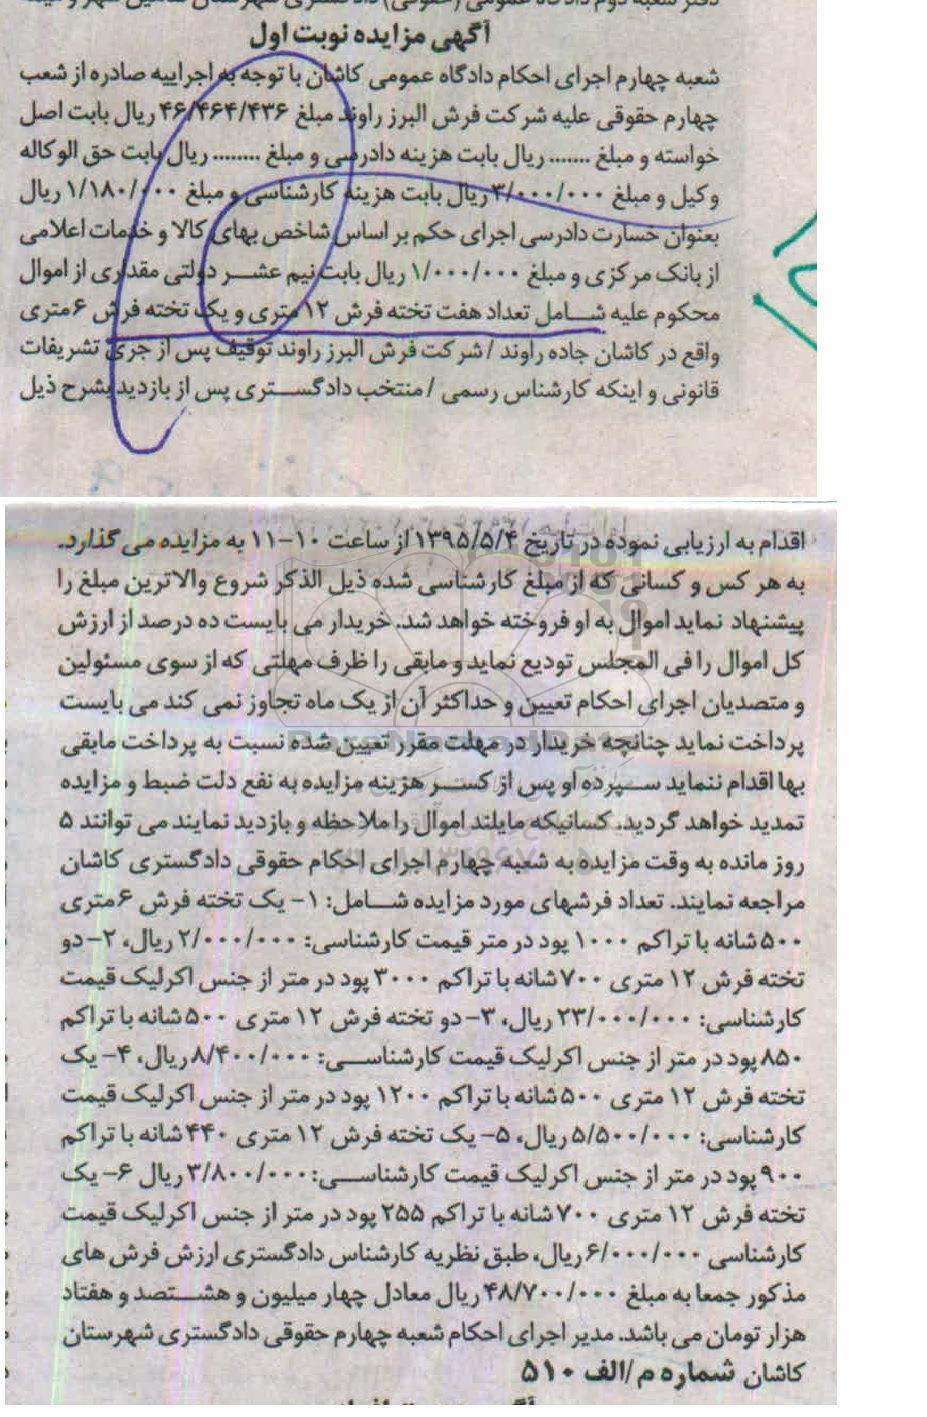 دفتر شعبه دوم دادگاه عمومی (حقوقی) دادگستری شهرستان شاهین شهر و میمه
آگهی مزایده نوبت اول
شعبه چهارم اجرای احکام دادگاه عمومی کاشان با توجه به اجراییه صادره از شعب
چهارم حقوقی علیه شرکت فرش البرز راوند مبلغ ۴۶/۴۶۴/۴۳۶ ریال بابت اصل
خواسته و مبلغ ....... ریال بابت هزینه دادرسی و مبلغ ........ ریال بابت حق الوکاله
وکیل و مبلغ ۳/۰۰۰/۰۰۰ ریال بابت هزینه کارشناسی و مبلغ ۱/۱۸۰/۰۰۰ ریال
بعنوان خسارت دادرسی اجرای حکم بر اساس شاخص بهای کالا و خدمات اعلامی
از بانک مرکزی و مبلغ ۱/۰۰۰/۰۰۰ ریال بابت نیم عشر دولتی مقداری از اموال
محکوم علیه شامل تعداد هفت تخته فرش ۱۲ متری و یک تخته فرش ۶ متری
واقع در کاشان جاده راوند / شرکت فرش البرز راوند توقیف پس از جری تشریفات
قانونی و اینکه کارشناس رسمی / منتخب دادگستری پس از بازدید بشرح ذیل
اقدام به ارزیابی نموده در تاریخ ۱۳۹۵/۵/۴ از ساعت ۱۰-۱۱ به مزایده می گذارد.
به هر کس و کسانی که از مبلغ کارشناسی شده ذیل الذکر شروع والاترین مبلغ را
پیشنهاد نماید اموال به او فروخته خواهد شد. خریدار می بایست ده درصد از ارزش
کل اموال را فی المجلس تودیع نماید و مابقی را ظرف مهلتی که از سوی مسئولین
و متصدیان اجرای احکام تعیین و حداکثر آن از یک ماه تجاوز نمی کند می بایست
پرداخت نماید چنانچه خریدار در مهلت مقرر تعیین شده نسبت به پرداخت مابقی
بها اقدام ننماید سپرده او پس از کسر هزینه مزایده به نفع دلت ضبط و مزایده
تمدید خواهد گردید. کسانیکه مایلند اموال را ملاحظه و بازدید نمایند می توانند ۵
روز مانده به وقت مزایده به شعبه چهارم اجرای احکام حقوقی دادگستری کاشان
مراجعه نمایند. تعداد فرشهای مورد مزایده شامل: ۱- یک تخته فرش ۶ متری
۵۰۰ شانه با تراکم ۱۰۰۰ پود در متر قیمت کارشناسی: ۲/۰۰۰/۰۰۰ ریال، ۲- دو
تخته فرش ۱۲ متری ۷۰۰ شانه با تراکم ۳۰۰۰ پود در متر از جنس اکرلیک قیمت
کارشناسی: ۲۳/۰۰۰/۰۰۰ ریال، ۳- دو تخته فرش ۱۲ متری ۵۰۰ شانه با تراکم
۸۵۰ پود در متر از جنس اکرلیک قیمت کارشناسی: ۸/۴۰۰/۰۰۰ ریال، ۴- یک
تخته فرش ۱۲ متری ۵۰۰ شانه با تراکم ۱۲۰۰ پود در متر از جنس اکرلیک قیمت
کارشناسی: ۵/۵۰۰/۰۰۰ ریال، ۵- یک تخته فرش ۱۲ متری ۴۴۰ شانه با تراکم
۹۰۰ پود در متر از جنس اکرلیک قیمت کارشناسی: ۳/۸۰۰/۰۰۰ ریال ۶- یک
تخته فرش ۱۲ متری ۷۰۰ شانه با تراکم ۲۵۵ پود در متر از جنس اکرلیک قیمت
کارشناسی ۶/۰۰۰/۰۰۰ ریال، طبق نظریه کارشناس دادگستری ارزش فرش های
مذکور جمعا به مبلغ ۴۸/۷۰۰/۰۰۰ ریال معادل چهار میلیون و هشتصد و هفتاد
هزار تومان می باشد. مدیر اجرای احکام شعبه چهارم حقوقی دادگستری شهرستان
کاشان شماره م/الف ۵۱۰